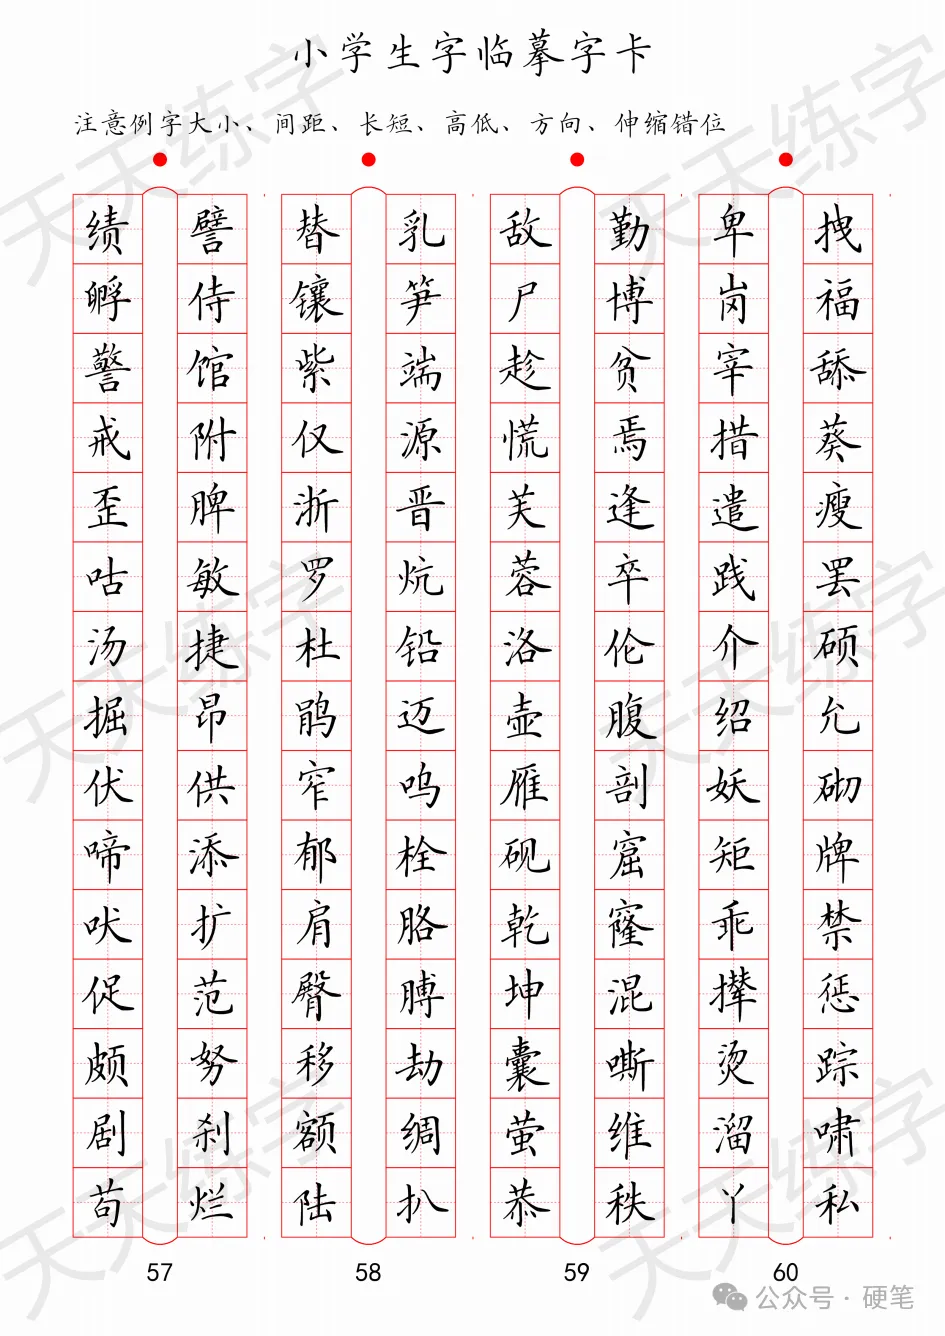 小学生字临摹字卡
注意例字大小、间距、长短、高低、方向、伸缩错位
绩 譬 替 乳 敌 勤 卑 拽
孵 侍 镶 笋 尸 博 岗 福
警 馆 紫 端 趁 贫 宰 舔
戒 附 仅 源 慌 焉 措 葵
歪 脾 浙 晋 芙 逢 遣 瘦
咕 敏 罗 炕 蓉 卒 践 罢
汤 捷 杜 铅 洛 伦 介 硕
掘 昂 鹃 迈 壶 腹 绍 允
伏 供 窄 呜 雁 剖 妖 砌
啼 添 郁 栓 砚 窟 矩 牌
吠 扩 肩 胳 乾 窿 乖 禁
促 范 臀 膊 坤 混 撵 惩
颇 努 移 劫 囊 嘶 烫 踪
剧 刹 额 绸 萤 维 溜 啸
苟 烂 陆 扒 恭 秩 丫 私
57 58 59 60
公众号·硬笔
天天练字
天天练字
天天练字
天天练字
天天练字
天天练字